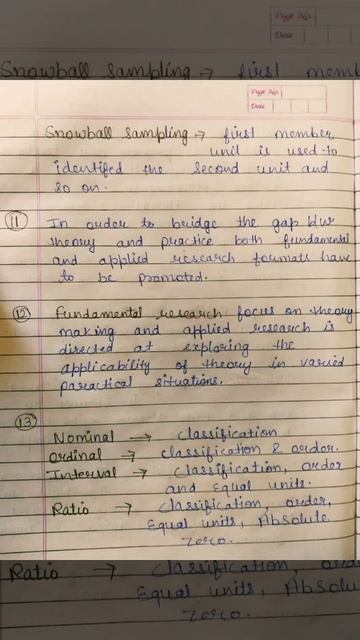 Page No.
Date
Snowball sampling → first memb
Page No.
Date
Snowball sampling → first member
unit is used to
identifed the second unit and
so on.
11 In order to bridge the gap b/w
theory and practice both fundamental
and applied research formats have
to be promoted.
12 Fundamental research focus on theory
making and applied research is
directed at exploring the
applicability of theory in varied
paractical situations.
13
Nominal → classification
Ordinal → classification & order.
Interval → classification, order
and Equal units.
Ratio → classification, order,
Equal units, Absolute
Zero.
Ratio → classification, orde
Equal units, Absolu
Zero.